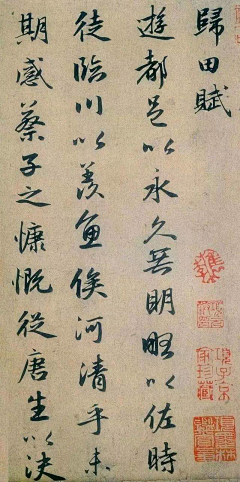 歸田賦
遊都邑以永久無明略以佐時
徒臨川以羨魚俟河清乎未
期感蔡子之慷慨從唐生以決
項子京家珍藏